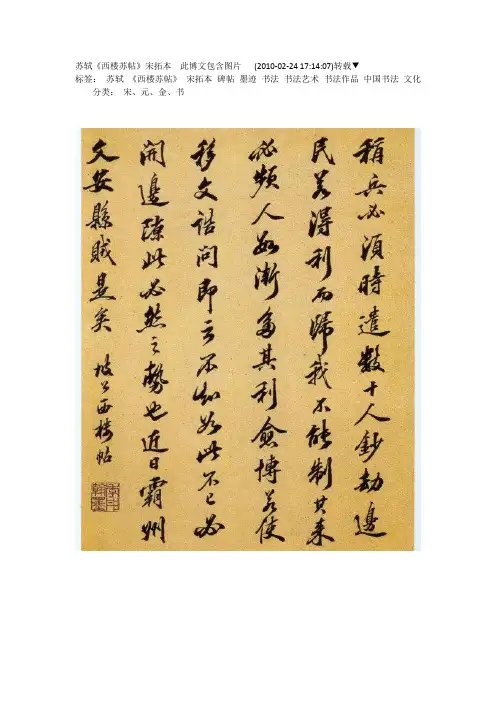 苏轼《西楼苏帖》宋拓本 此博文包含图片 (2010-02-24 17:14:07)转载▼
标签： 苏轼 《西楼苏帖》 宋拓本 碑帖 墨迹 书法 书法艺术 书法作品 中国书法 文化
分类： 宋、元、金、书
稍兵必須時遣數十人鈔劫邊
民若得利而歸我不能制其来
必頻人數漸多其利愈博若使
移文詰問即云不知如此不已必
開邊隙此必然之勢也近日霸州
文安縣賊是矣 坡公西樓帖